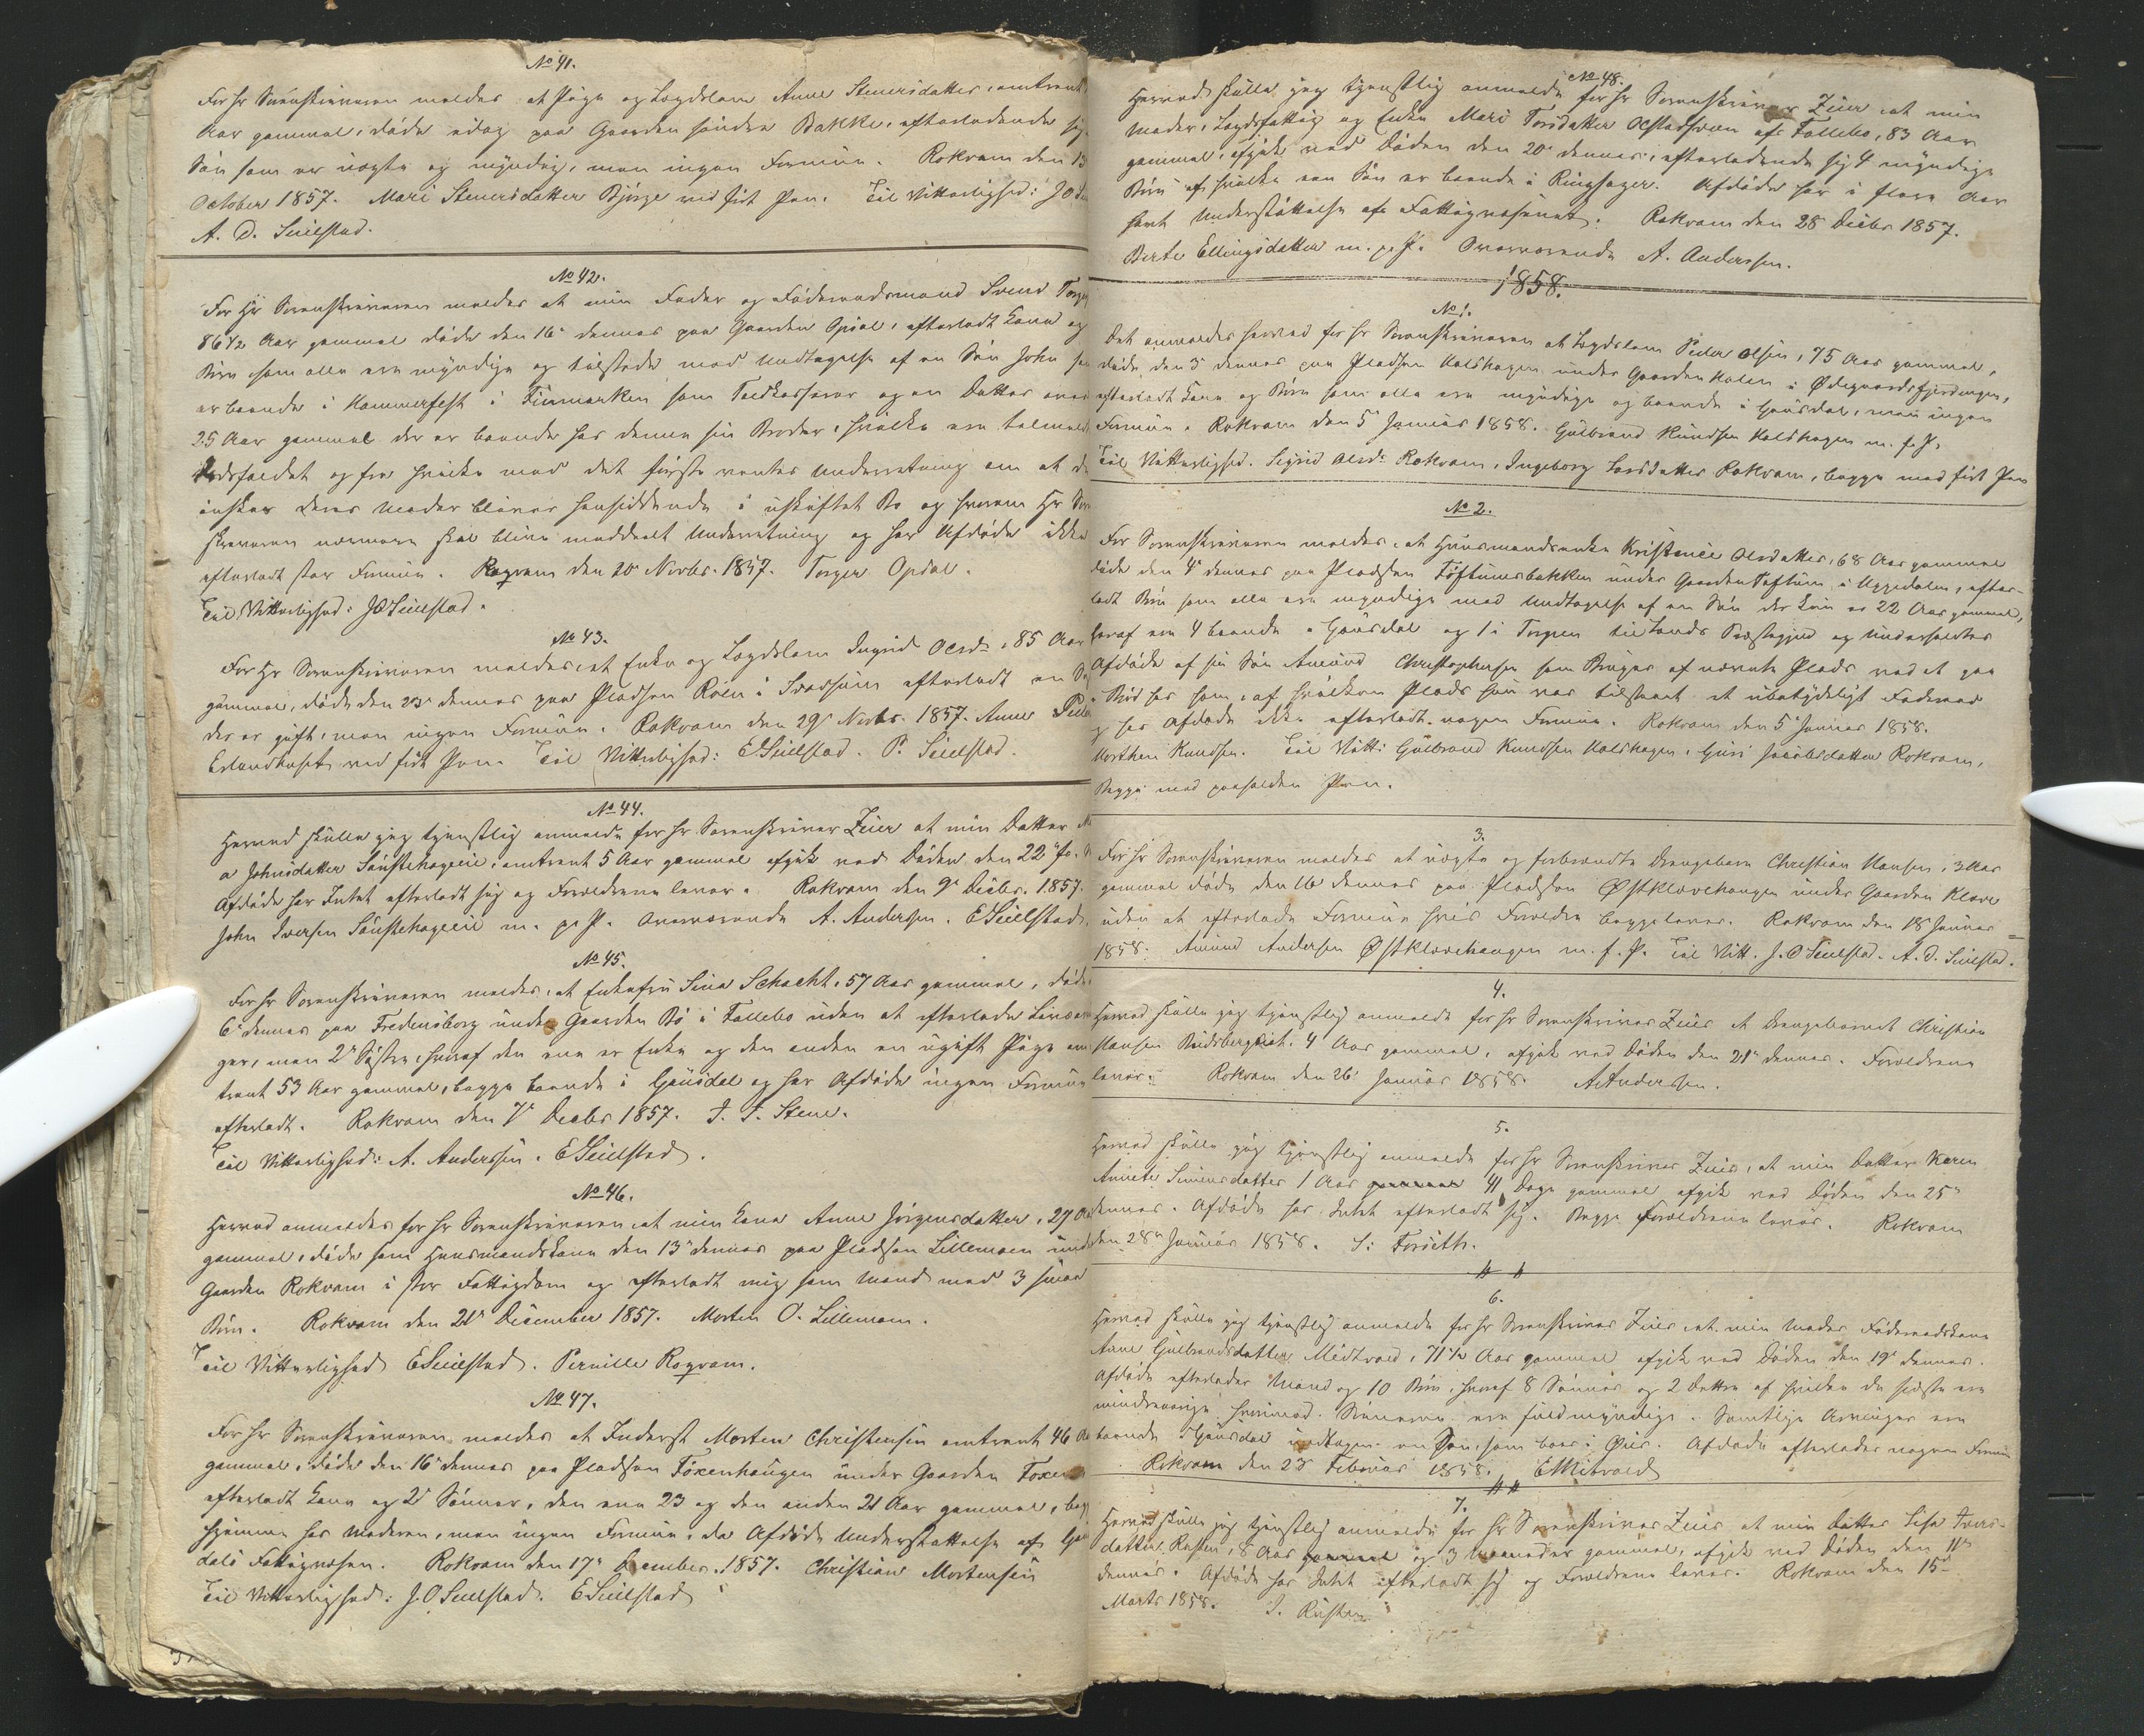 No 41.
For Hr Sorenskriveren meldes at Pige og Lægdslem Anne Steuersdatter, omtrent
Aar gammel, døde idag paa Gaarden søndre Bakke, efterladende sig
Søn som er uægte og myndig, men ingen Formue. Rokvam den 13
October 1857. Mari Steuersdatter Bjørge ved fört Pen. Til Vitterlighed:
A. O. Seielstad.
No 42.
For Hr Sorenskriveren meldes at min Fader og Föderaadsmand Svend
86½ Aar gammel døde den 16de dennes paa Gaarden Opdal, efterladt Kone og
Börn som alle ere myndige og tilstede med Undtagelse af en Sön John
er boende i Hammerfest i Finmarken som Toldkasserer og en Datter
25 Aar gammel der er boende hos denne sin Broder, hvilke ere
og fra hvilke med det første ventes Underretning om at
ønsker deres Moder bliver hensiddende i uskiftet Bo og hvorom Hr
skriveren nærmere skal blive meddeelt Underretning og har Afdøde ikke
efterladt stor Formue. Roqvam den 20de Novbr. 1857. Torger Opdal.
Til Vitterlighed: JO Seielstad.
No 43.
For Hr Sorenskriveren meldes, at Enke og Lægdslem Ingrid Olsdr, 85 Aar
gammel, døde den 23de dennes paa Pladsen Röen i Svadsum efterladt en
der er gift, men ingen Formue. Rokvam den 29de Novbr. 1857. Anne
Erlandhuset ved fört Pen. Til Vitterlighed: E Seielstad. P. Seielstad.
No 44.
Herved skulle jeg tjenstlig anmelde for Hr Sorenskriver Zeier at min Datter
a Johnsdatter Sönstehageeie, omtrent 5 Aar gammel afgik ved Døden den 22de
Afdøde har Intet efterladt sig og Forældrene lever. Rokvam den 9de Decbr. 1857.
John Iversen Sönstehageeie m. p. P. Overværende A. Anderssen. E Seielstad.
No 45.
For Hr Sorenskriveren meldes, at Enkefru Sina Schacht, 57 Aar gammel, døde
6te dennes paa Fredensborg under Gaarden Bö i Follebo uden at efterlade Livsarvin
ger, men 2de Søstre, hvoraf den ene er Enke og den anden en ugift Pige om
trent 53 Aar gammel, begge boende i Gausdal og har Afdøde ingen Formue
efterladt. Rokvam den 7de Decbr 1857. J. F. Steue.
Til Vitterlighed: A. Anderssen. E Seielstad.
No 46.
Herved anmeldes for Hr Sorenskriveren at min Kone Anne Jörgensdatter, 29
gammel, døde som Huusmandskone den 13de dennes paa Pladsen Lillemoen
Gaarden Rokvam i stor Fattigdom og efterladt mig som Mand med 3 smaa
Börn. Rokvam den 21de December 1857. Morten O. Lillemoen.
Til Vitterlighed E Seielstad. Pernille Roqvam.
No 47.
For Hr Sorenskriveren meldes at Inderst Morten Christensen omtrent 46
gammel, døde den 16de dennes paa Pladsen Foxenhaugen under Gaarden
efterladt Kone og 2de Sönner, den ene 23 og den anden 21 Aar gammel,
hjemme hos Moderen, men ingen Formue, da Afdøde Understøttelse af
dals Fattigvæsen. Rokvam den 17de December 1857. Christian Mortensen
Til Vitterlighed: J. O Seielstad. E Seielstad
No 48.
Herved skulle jeg tjenstlig anmelde for Hr Sorenskriver Zeier at min
Moder, Lægdsfattig og Enke Mari Torsdatter af Follebo, 83 Aar
gammel, afgik ved Döden den 20de dennes, efterladende sig 4 myndige
Börn af hvilke een Sön er boende i Ringsager. Afdøde har i flere Aar
havt Understöttelse af Fattigvæsenet. Rokvam den 28de Decbr 1857.
Berte Ellingsdatter m. p. P. Overværende A. Anderssen.
1858.
No 1.
Det anmeldes herved for Hr Sorenskriveren at Lægdslem Peder Olsen, 75 Aar gammel,
døde den 3de dennes paa Pladsen Holshagen under Gaarden Holen i Ødegaardsfjerdingen,
efterladt Kone og Börn som alle ere myndige og boende i Gausdal, men ingen
Formue. Rokvam den 5te Januar 1858. Gulbrand Knudsen Holshagen m. f. P.
Til Vitterlighed. Sigrid Olsdr Rokvam, Ingeborg Larsdatter Rokvam, begge med fört Pen
No 2.
For Sorenskriveren meldes, at Huusmandsenke Kristense Olsdatter, 68 Aar gammel
døde den 4de dennes paa Pladsen Töftumsbakken under Gaarden Toftum i Uggedalen, efter-
ladt Börn som alle ere myndige med Undtagelse af en Sön der kun er 22 Aar gammel,
hvoraf ere 4 boende i Gausdal og 1 i Torpen til Lands Præstegjeld og underholdtes
Afdøde af sin Sön Amund Christophersen som Bruger af nævnte Plads ved at gaa
i Bröd hos ham, af hvilken Plads hun var tilstaaet et ubetydeligt Føderaad
og har Afdøde ikke efterladt nogen Formue. Rokvam den 5te Januar 1858.
Morthen Knudsen. Til Vitt: Gulbrand Knudsen Holshagen, Guri Jacobsdatter Rokvam,
Begge med paaholden Pen.
3.
For Hr Sorenskriveren meldes at uægte Drengebarn Christian Hansen, 3 Aar
gammel døde den 16 dennes paa Pladsen Østklævehaugen under Gaarden Kleve
uden at efterlade Formue hvis Foreldre begge lever. Rokvam den 18 Januar
1858. Amund Andersen Østklævehaugen m. f. P. Til Vitt. J. O Seielstad. A. O. Seielstad.
4.
Herved skulle jeg tjenstlig anmelde for Hr Sorenskriver Zeier at Drengebarnet Christian
Hansen, 4 Aar gammel, afgik ved Döden den 21de dennes. Forældrene
lever. Rokvam den 26 Januar 1858. A. Anderssen.
5.
Herved skulle jeg tjenstlig anmelde for Hr Sorenskriver Zeier, at min Datter Karen
Annete Simensdatter 1 Aar 41 Dage gammel afgik ved Döden den 25de
dennes. Afdøde har Intet efterladt sig. Begge Forældrene lever. Rokvam
den 28de Januar 1858. S: Forseth.
6.
Herved skulle jeg tjenstlig anmelde for Hr Sorenskriver Zeier at min Moder Föderaadskone
Anne Gulbrandsdatter Midtvold, 71½ Aar gammel afgik ved Döden den 19de dennes.
Afdøde efterlader Mand og 10 Börn, hvoraf 8 Sönner og 2 Døttre af hvilke de sidste ere
mindreaarige hvorimod Sönnerne ere fuldmyndige. Samtlige Arvinger ere
boende i Gausdal undtagen en Sön, som boer i Øier. Afdøde efterlader nogen Formue
Rokvam den 23de Februar 1858. E Mitvold
7.
Herved skulle jeg tjenstlig anmelde for Hr Sorenskriver Zeier at min Datter Lisa Ivers-
datter Rusten, 8 Aar gammel og 3 Maaneder gammel, afgik ved Döden den 11te
dennes. Afdøde har Intet efterladt sig og Forældrene lever. Rokvam den 15de
Marts 1858. I. Rusten